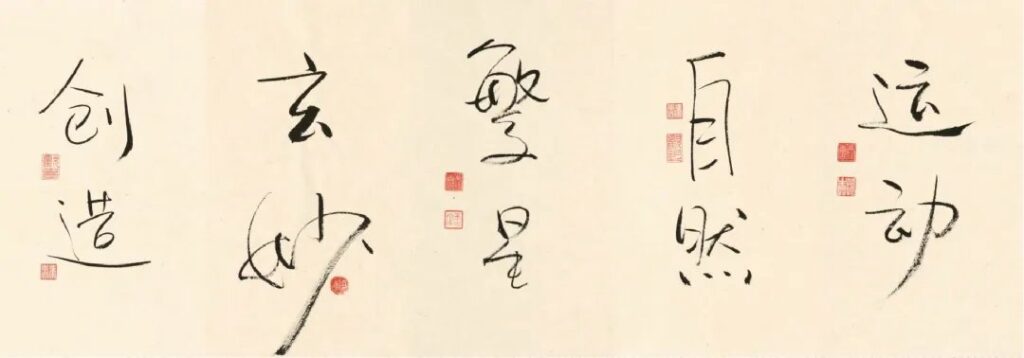 运动
自然
繁星
玄妙
创造